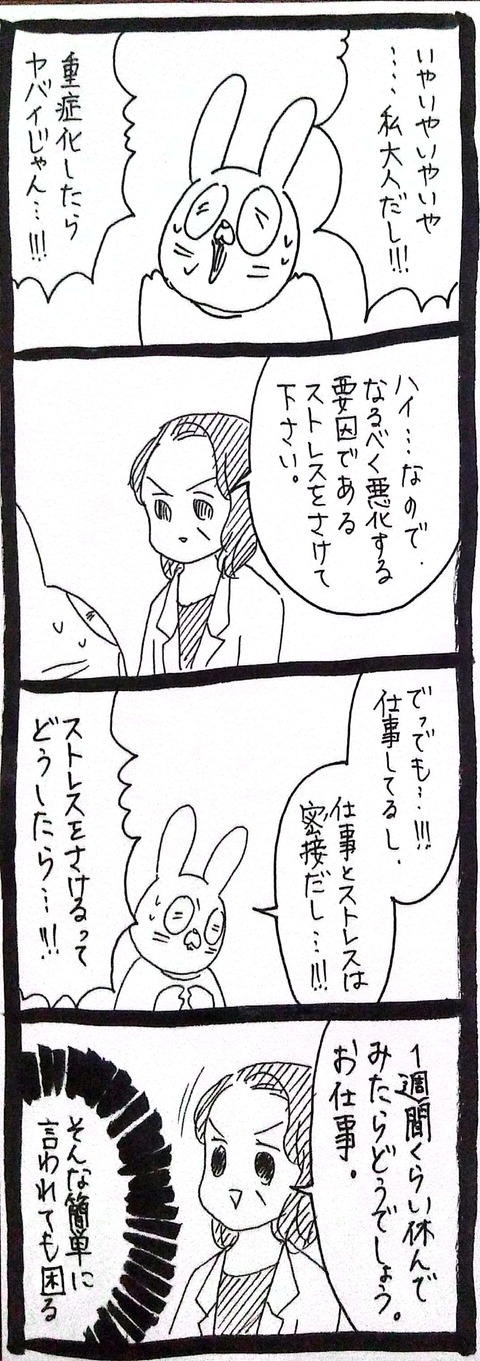 いやいやいやいや
……私大人だし!!!
重症化したら
ヤバイじゃん…!!!
ハイ…なので、
なるべく悪化する
要因である
ストレスをさけて
下さい。
でっでも…!!!
仕事してるし、
仕事とストレスは
密接だし…!!!
ストレスをさけるって
どうしたら…!!!
1週間くらい休んで
みたらどうでしょう。
お仕事。
そんな簡単に
言われても困る